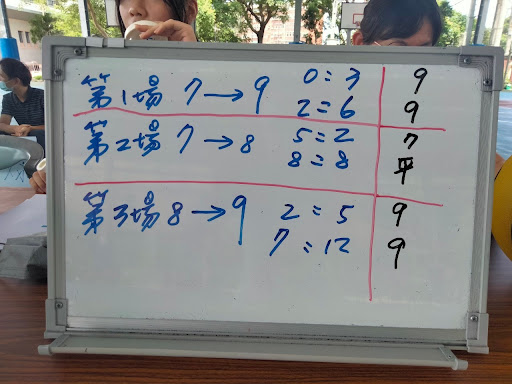 第1場 7→9 0:3 9
2:6 9
第2場 7→8 5:2 7
8:8 平
第3場 8→9 2:5 9
7:12 9